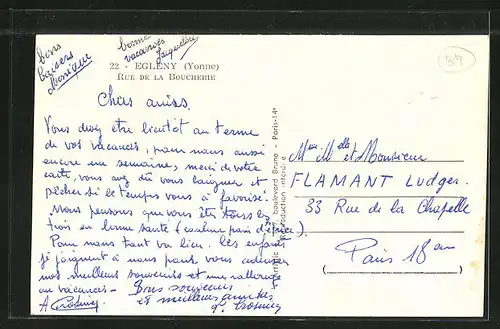 bons
baisers
Monique
bonne
vacances
Jacqueline
89
22 - EGLENY (Yonne)
RUE DE LA BOUCHERIE
Chers amis.
Vous devez être bientôt au terme
de vos vacances, pour nous aussi
encore une semaine, merci de votre
carte, vous avez dû vous baigner et
pêcher si le temps vous a favorisé.
Nous pensons que vous êtes tous les
trois en bonne santé (comme pain d'épice)
Pour nous tout va bien. Les enfants
se joignent à nous pour vous adresser
nos meilleurs souvenirs et une rallonge
au vacances -
Bons souvenirs
et meilleures amitiés
boulevard Brune - Paris-14e
Reproduction interdite
Mme Mlle et Monsieur
FLAMANT Ludger.
33 Rue de la Chapelle
Paris 18em